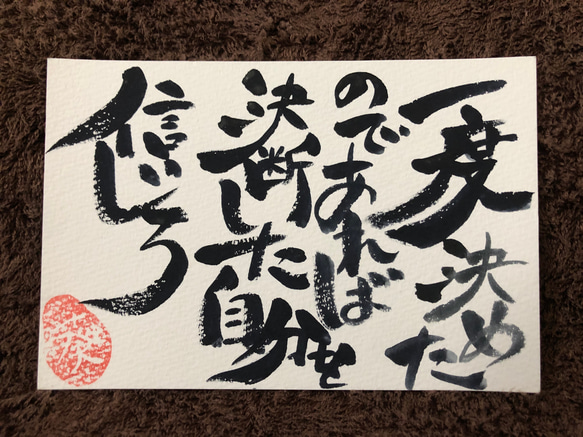 一度決めた
のであれば
決断した自分を
信じろ